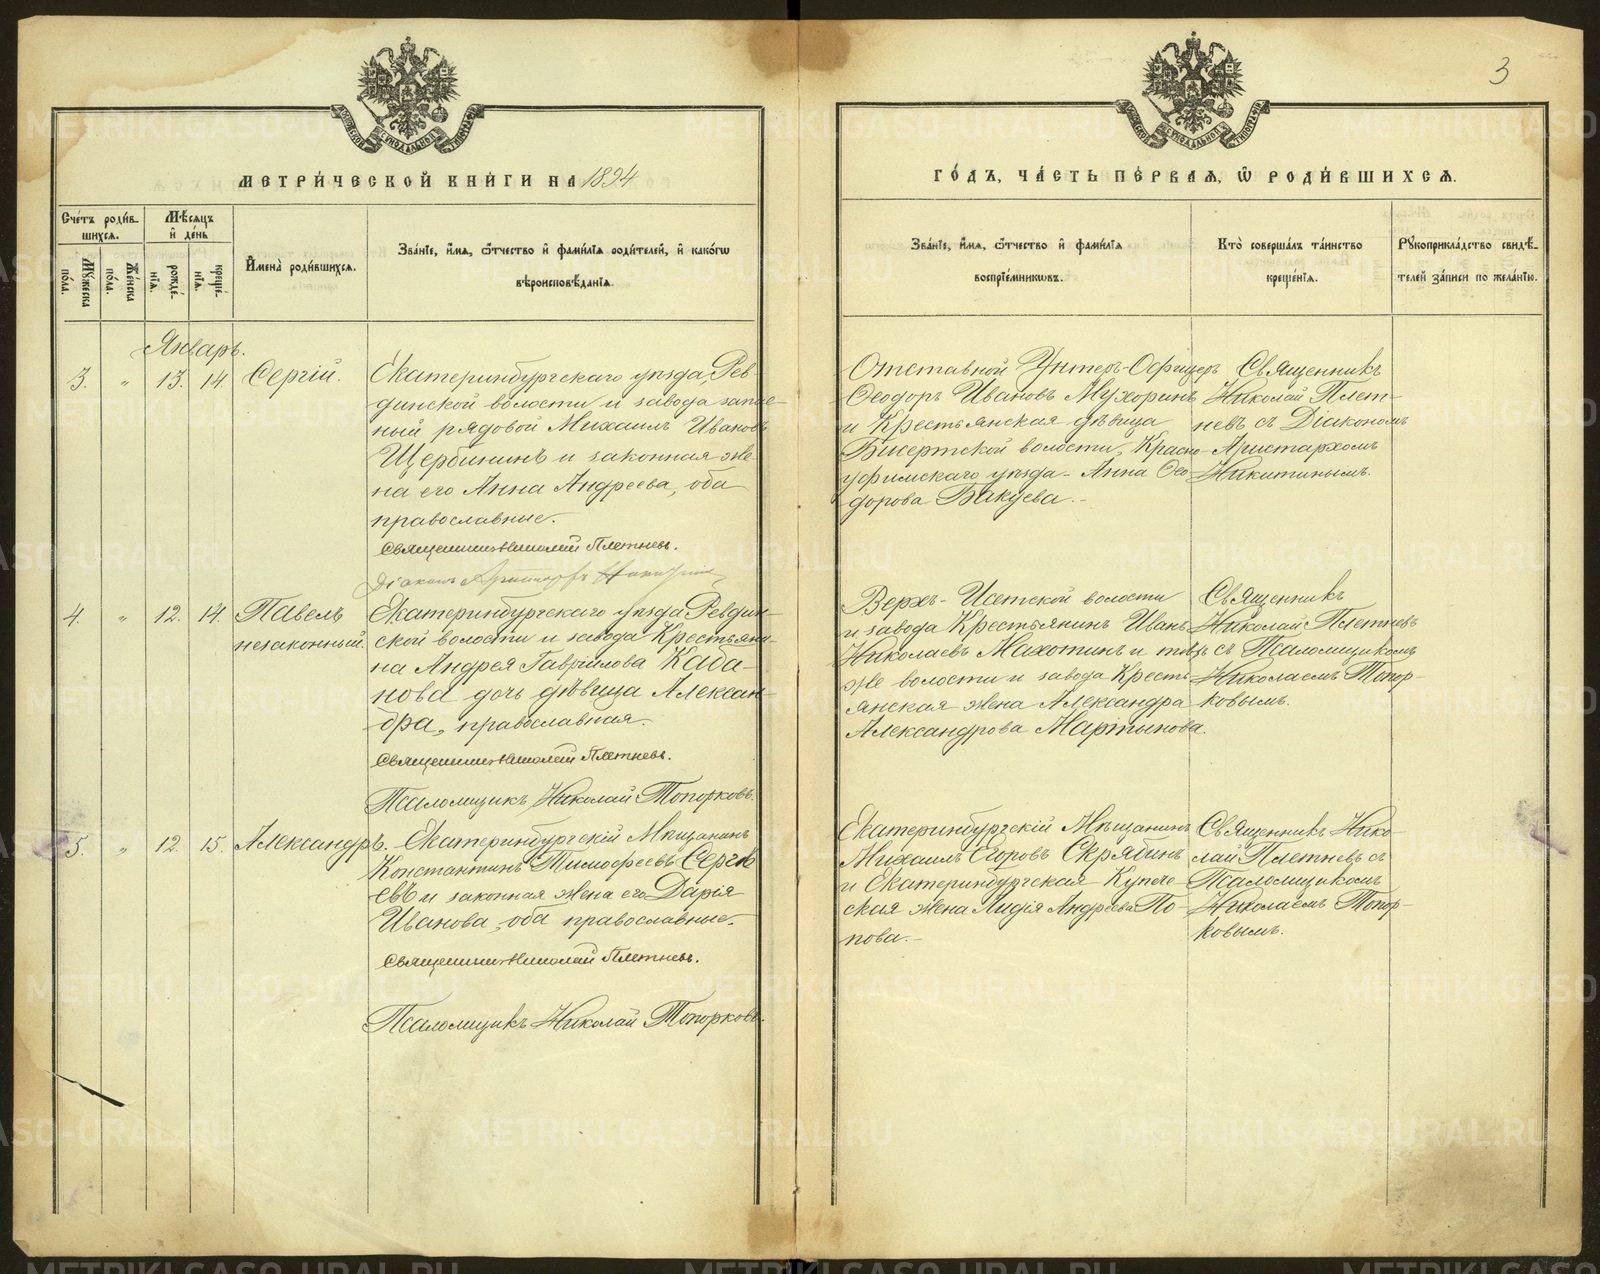 3
МЕТРИ́ЧЕСКОЙ КНИ́ГИ НА 1894
ГО́ДЪ, ЧА́СТЬ ПЕ́РВАЯ, Ѡ҆ РОДИ́ВШИХСЯ.
Сче́тъ роди́в-
шихся.
Мѣ́сяцъ
и҆ де́нь
Му́жеска
по́ла.
Же́нска
по́ла.
рожде́-
нїя.
креще́-
нїя.
И҆мена̀ роди́вшихся.
Зва́нїе, и҆́мя, ѻ҆́тчество и҆ фами́лїя роди́телей, и҆ како́гѡ
вѣроисповѣ́данїя.
Зва́нїе, и҆́мя, ѻ҆́тчество и҆ фами́лїя
воспрїе́мникѡвъ.
Кто̀ соверша́лъ та́инство
креще́нїя.
Рꙋкоприкла́дство свидѣ́-
телей за́писи по жела́нїю.
Январь.
3. „ 13. 14. Сергій.
Екатеринбургскаго уѣзда, Рев-
динской волости и завода запас-
ный рядовой Михаилъ Ивановъ
Щербининъ и законная же-
на его Анна Андреева, оба
православные.
Священникъ Николай Плетневъ.
Діаконъ Аристархъ Никитинъ
Отставной Унтеръ-Офицеръ
Ѳеодоръ Ивановъ Мухоринъ
и Крестьянская дѣвица
Бисертской волости, Красно-
уфимскаго уѣзда - Анна Ѳео-
дорова Бакуева.-
Священникъ
Николай Плет-
невъ съ Діакономъ
Аристархомъ
Никитинымъ.
4. „ 12. 14. Павелъ
незаконный.
Екатеринбургскаго уѣзда Ревдин-
ской волости и завода Крестьяни-
на Андрея Гавріилова Каба-
нова дочь дѣвица Алексан-
дра, православная.
Священникъ Николай Плетневъ.
Псаломщикъ Николай Топорковъ.
Верхъ-Исетской волости
и завода Крестьянинъ Иванъ
Николаевъ Махотинъ и той
же волости и завода Кресть-
янская жена Александра
Александрова Мартынова.
Священникъ
Николай Плетневъ
съ Псаломщикомъ
Николаемъ Топор-
ковымъ.
5. „ 12. 15. Александръ.
Екатеринбургскій Мѣщанинъ
Константинъ Тимофеевъ Сергѣ-
евъ и законная жена его Дарія
Иванова, оба православные.
Священникъ Николай Плетневъ.
Псаломщикъ Николай Топорковъ.
Екатеринбургскій Мѣщанинъ
Михаилъ Егоровъ Скрябинъ
и Екатеринбургская Купече-
ская жена Лидія Андреева По-
пова.-
Священникъ Нико-
лай Плетневъ съ
Псаломщикомъ
Николаемъ Топор-
ковымъ.
METRIKI.GASO-URAL.RU